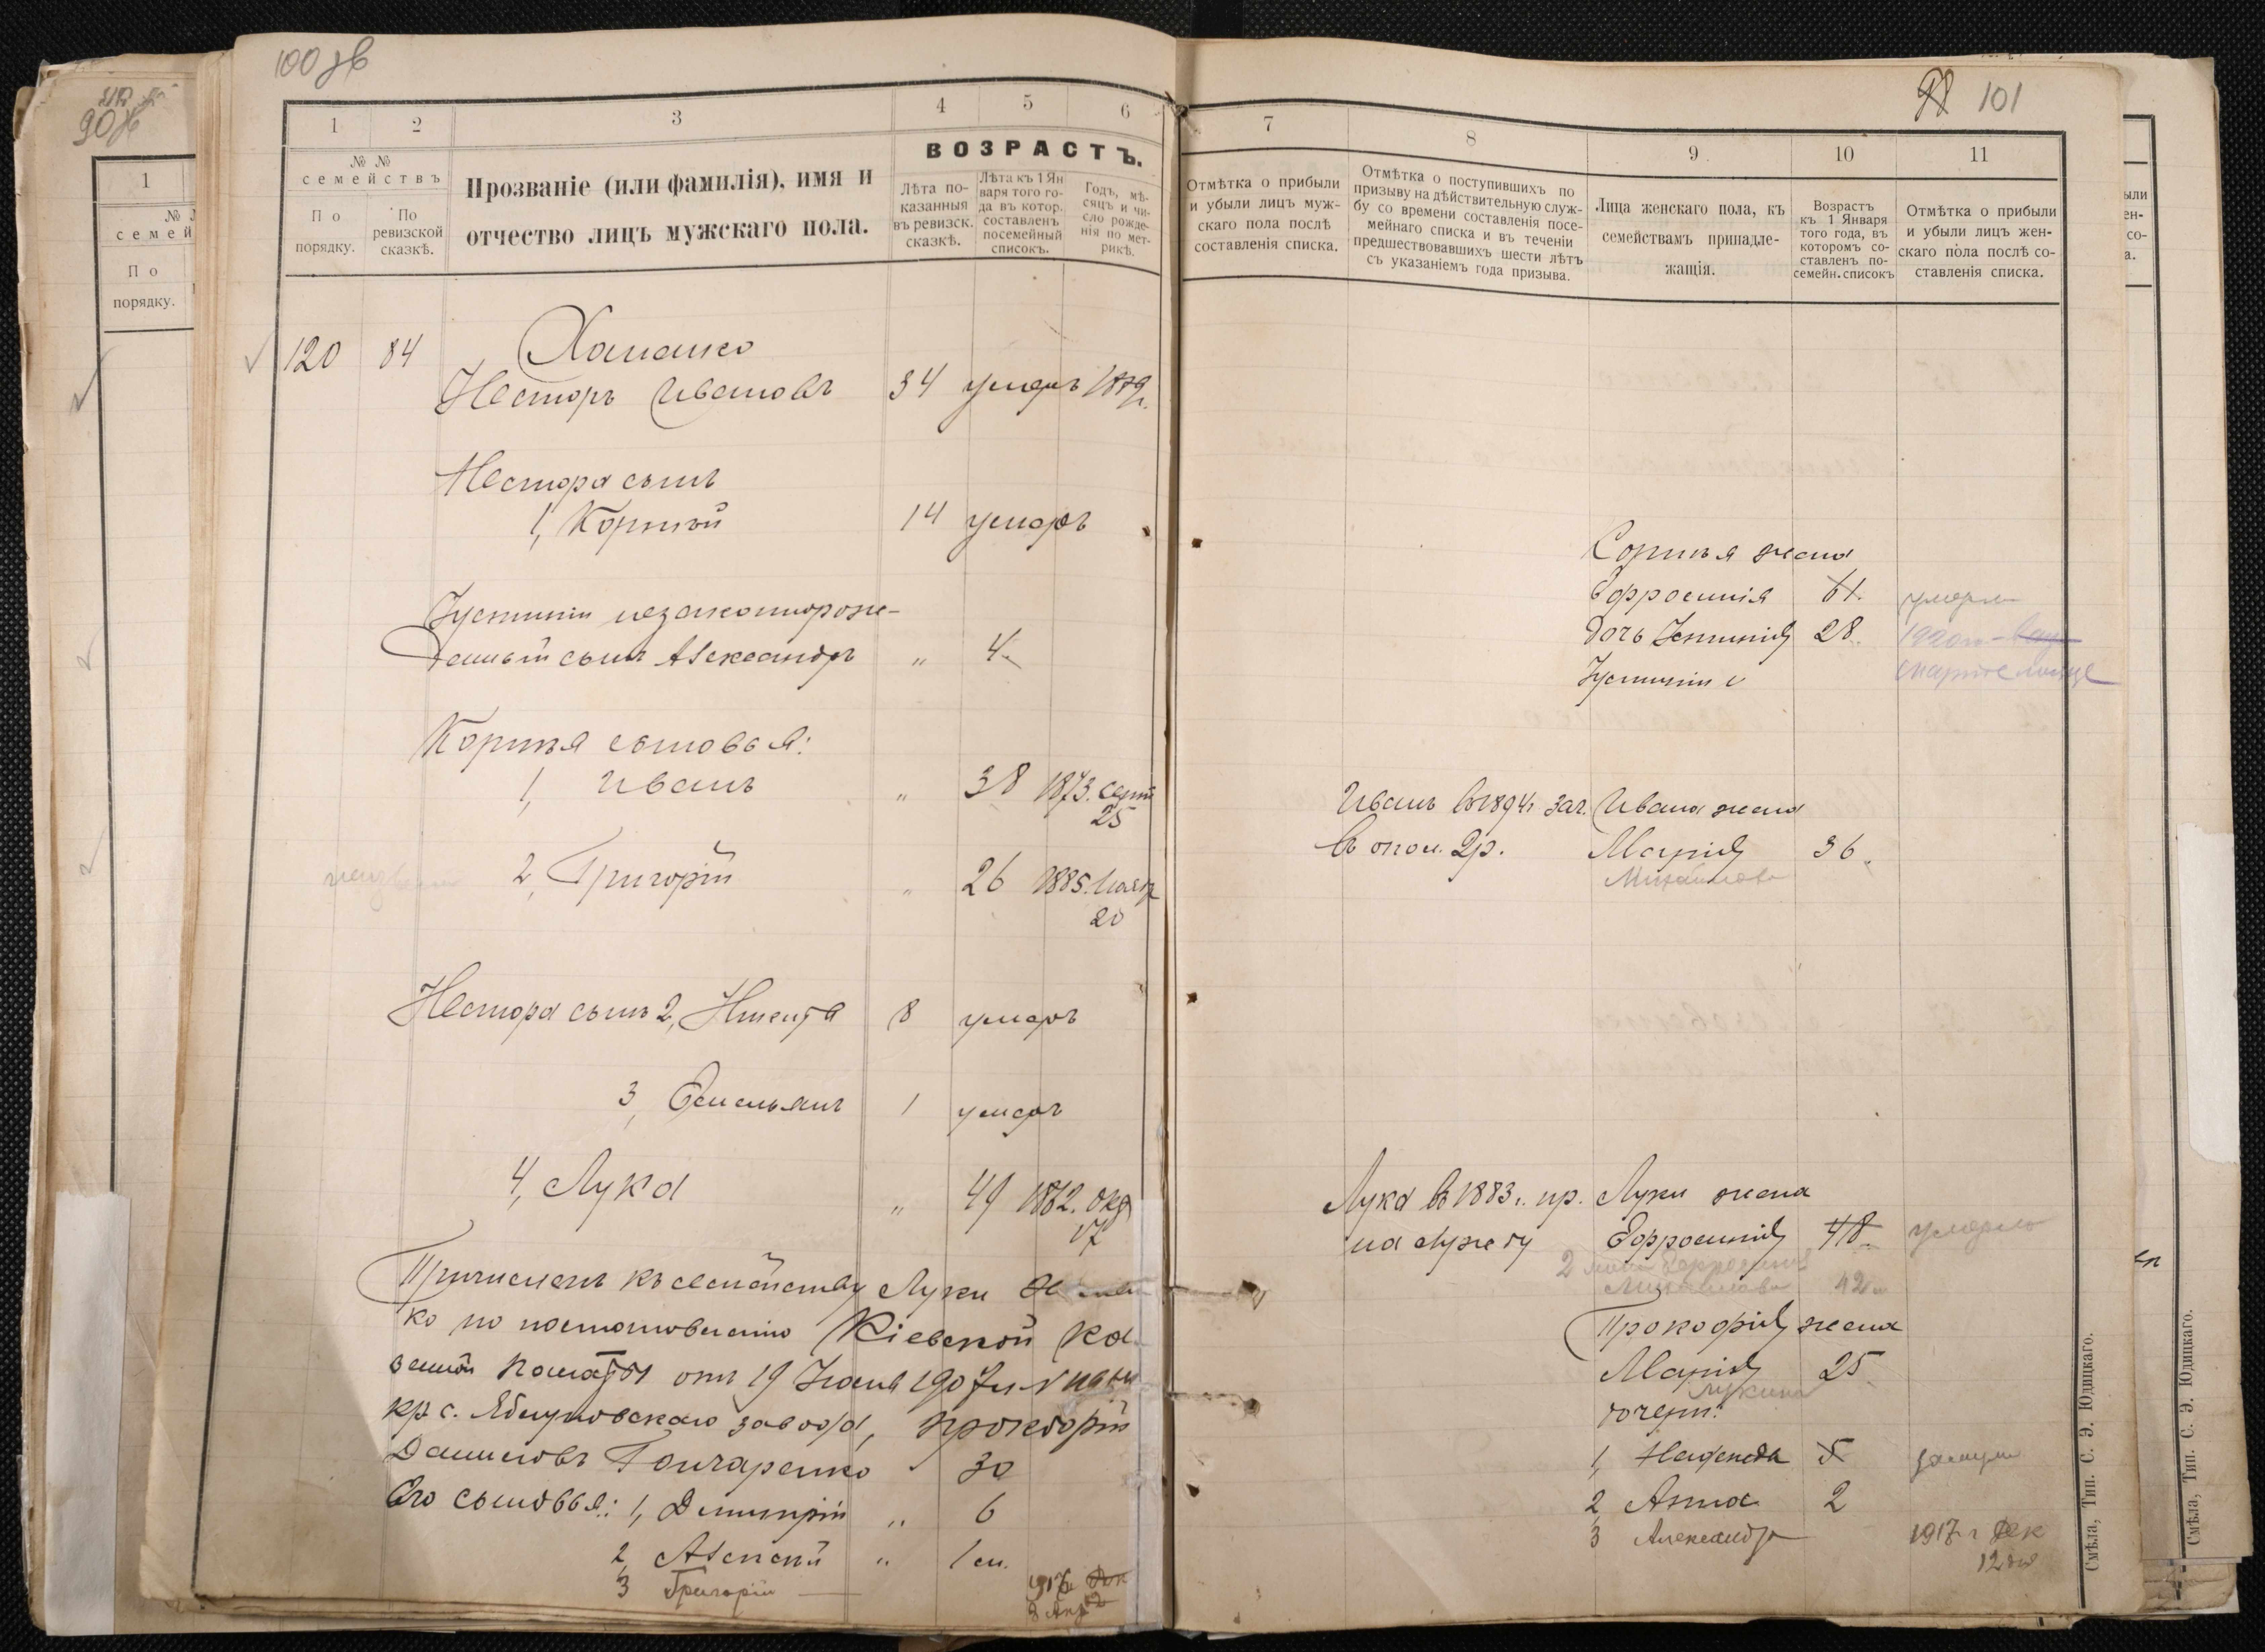 100 об
90 об
101
1 2 3 4 5 6
№ № семействъ
По порядку.
По ревизской сказкѣ.
Прозваніе (или фамилія), имя и
отчество лицъ мужскаго пола.
ВОЗРАСТЪ.
Лѣта по-
казанныя
въ ревизск.
сказкѣ.
Лѣта къ 1 Ян
варя того го-
да въ котор.
составленъ
посемейный
списокъ.
Годъ, мѣ-
сяцъ и чи-
сло рожде-
нія по мет-
рикѣ.
120 84
Несторъ Ивановъ 34 умеръ 1879г.
Нестора сынъ
1, Корнѣй 14 умеръ
Іустиніи незаконнорож-
денный сынъ Александръ " 4
Корнѣя сыновья:
1, Иванъ " 38 1873. Сент
25
2, Григорій " 26 1885. Ноябр
20
Нестора сынъ 2, Никита 8 умеръ
3, Емельянъ 1 умеръ
4, Лука " 49 1862. Окт
17
Причисленъ къ семейству Луки
ко по постановленію Кіевской Ка-
зенной Палаты отъ 19 1907г.
кр. с. Яблуновскаго завода, Прокофій
Даниловъ Гончаренко " 30
Его сыновья: 1, Димитрій " 6
2, Алексѣй " 1 м.
3 Григорій
7 8 9 10 11
Отмѣтка о прибыли
и убыли лицъ муж-
скаго пола послѣ
составленія списка.
Отмѣтка о поступившихъ по
призыву на дѣйствительную служ-
бу со времени составленія посе-
мейнаго списка и въ теченіи
предшествовавшихъ шести лѣтъ
съ указаніемъ года призыва.
Лица женскаго пола, къ
семействамъ принадле-
жащія.
Возрастъ
къ 1 Января
того года, въ
которомъ со-
ставленъ по-
семейн. списокъ
Отмѣтка о прибыли
и убыли лицъ жен-
скаго пола послѣ со-
ставленія списка.
Корнѣя жена
Ефросинія 61 умерла
дочь Іустинія 28
Иванъ въ 1894г. зач. Ивана жена
въ опол. 2р. Марія 36
Михайлова
Лука въ 1883г. пр. Луки жена
на службу Ефросинія 48 умерла
Михайлова 42
Прокофія жена
Марія 25
Лукина
дочери:
1, 5
2, Анна 2
3 Александра 1917 г Дек
12 дня
Смѣла, Тип. С. Э. Юдицкаго.
Смѣла, Тип. С. Э. Юдицкаго.